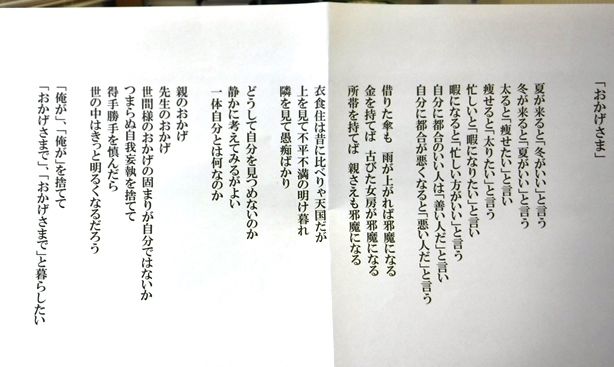 「おかげさま」
夏が来ると「冬がいい」と言う
冬が来ると、「夏がいい」と言う
太ると「痩せたい」と言い
痩せると、「太りたい」と言う
忙しいと「暇になりたい」と言い
暇になると「忙しい方がいい」と言う
自分に都合のいい人は「善い人だ」と言い
自分に都合が悪くなると「悪い人だ」と言う
借りた傘も　雨が上がれば邪魔になる
金を持てば　古びた女房が邪魔になる
所帯を持てば　親さえも邪魔になる
衣食住は昔に比べりゃ天国だが
上を見て不平不満の明け暮れ
隣を見て愚痴ばかり
どうして自分を見つめないのか
静かに考えてみるがよい
一体自分とは何なのか
親のおかげ
先生のおかげ
世間様のおかげの固まりが自分ではないか
つまらぬ自我妄執を捨てて
得手勝手を慎んだら
世の中はきっと明るくなるだろう
「俺が」、「俺が」を捨てて
「おかげさまで」、「おかげさまで」と暮らしたい